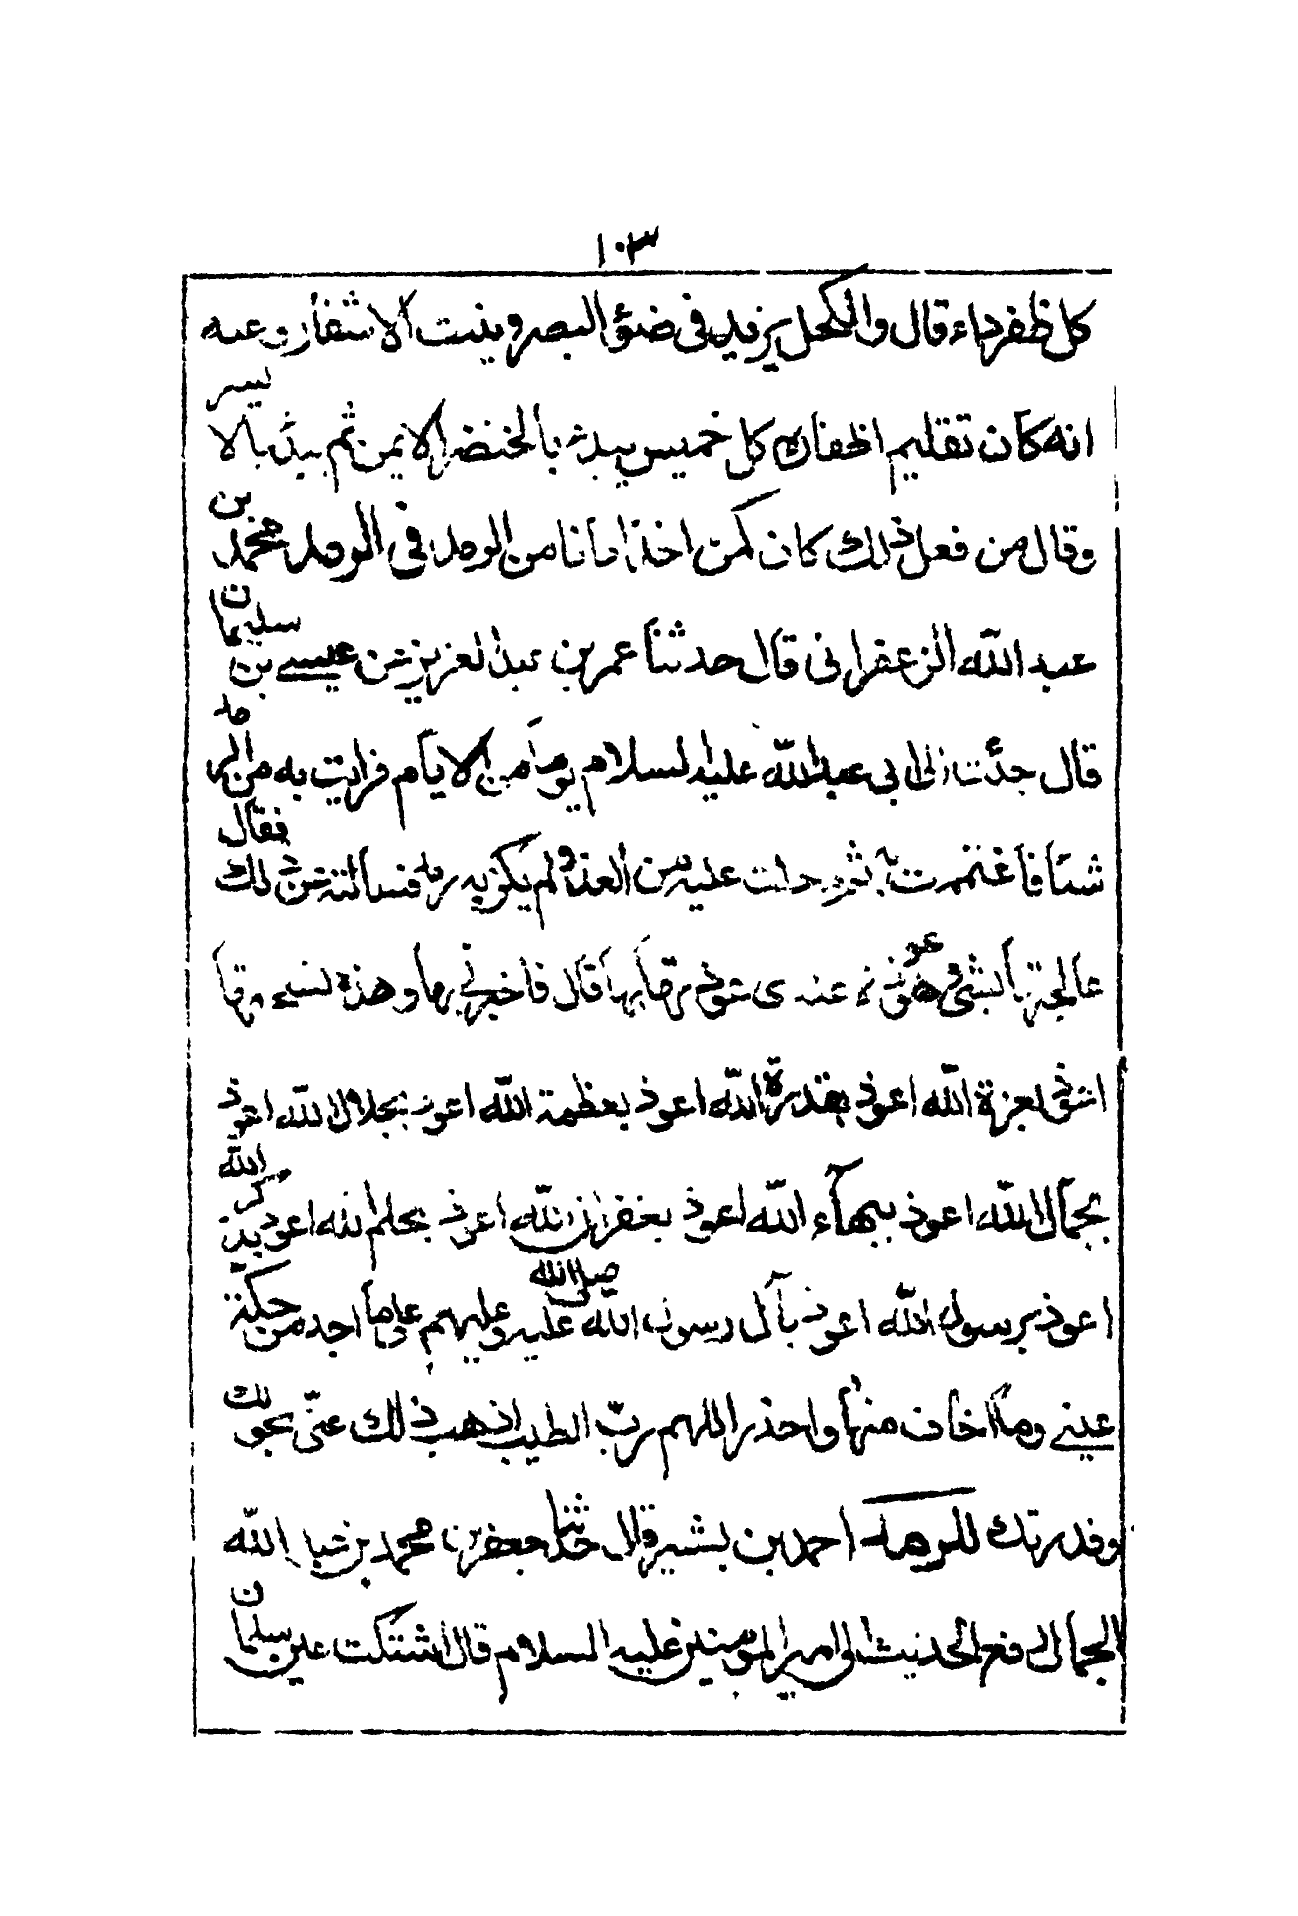 ١٠٣
كل ظفر داء قال والكحل يزيد فى ضوٴ البصر وينبت الاشفار وعنه
انه كان تقليم اظفاره كل خميس يبدء بالخنضر الايمن ثم يبدٴ بالايسر
وقال من فعل ذلك كان كمن اخذ امانا من الرمد فى الرمد محمد بن
عبد الله الزعفرانى قال حدثنا عمر بن عبد العزيز عن عيسے بن سليمان
قال جئت الى ابى عبد الله عليه السلام يوما من الايام فرايت به من الرمد
شئا فاغتممت به ثم دخلت عليه من الغد ولم يكن به رمد فسالته عن ذلك فقال
عالجتها بشئ وهو عوذه عندى عوذتها بها قال فاخبرنى بها وهذه نسختها
اعوذ بعزة الله اعوذ بقدرة الله اعوذ بعظمة الله اعوذ بجلال الله اعوذ
بجمال الله اعوذ ببهاء الله اعوذ بغفران الله اعوذ بحلم الله اعوذ بذكر الله
اعوذ برسول الله اعوذ بآل رسول الله صلى الله عليه وعليهم على ما اجد من حكة
عينے وما اخاف منها واحذر اللهم ربّ الطيب اذهب ذلك عنّى بحولك
وقدرتك للرمد احمد بن بشير قال حدثنا جعفر بن محمد بن عبد الله
الجمال رفع الحديث الى امير المومنين عليه السلام قال اشتكت عين سلمان